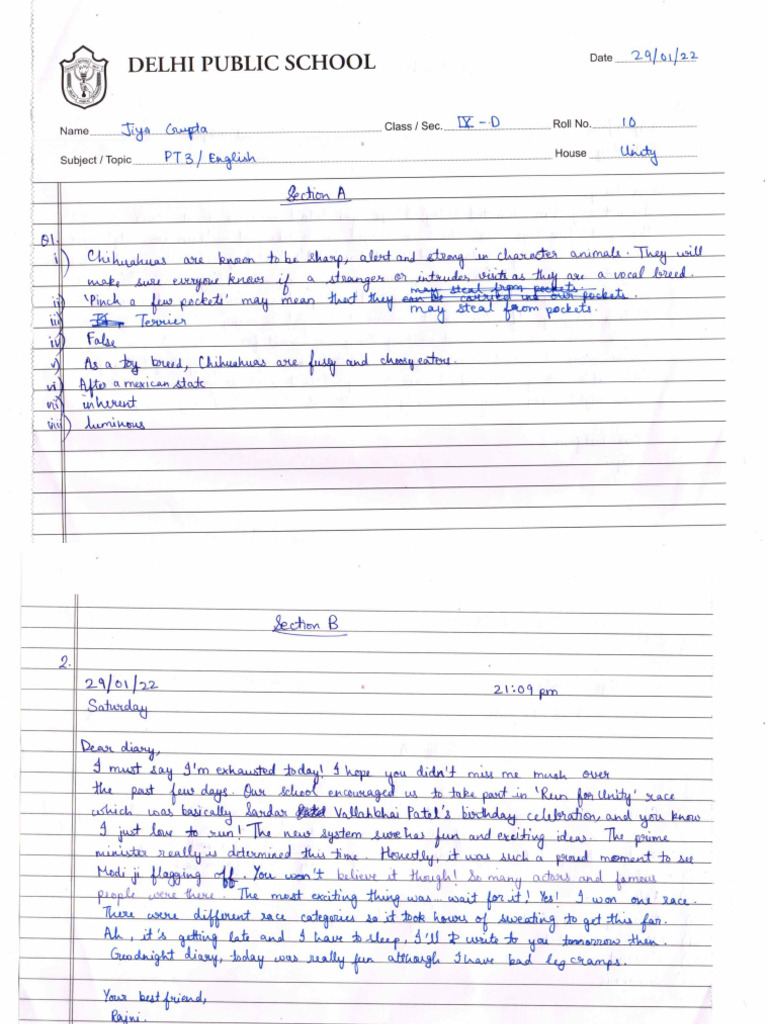 DELHI PUBLIC SCHOOL
Date 29/01/22
Name Jiya Gupta Class / Sec. IX - D Roll No. 10
Subject / Topic PT3 / English House Unity
Section A
Q1.
i) Chihuahuas are known to be sharp, alert and strong in character animals. They will
make sure everyone knows if a stranger or intruder visits as they are a vocal breed.
may steal from pockets.
ii) 'Pinch a few pockets' may mean that they can be carried in our pockets.
may steal from pockets.
iii) Terrier
iv) False
v) As a toy breed, Chihuahuas are fussy and choosy eaters.
vi) After a mexican state
vii) inherent
viii) luminous
Section B
2.
29/01/22 21:09 pm
Saturday
Dear diary,
I must say I'm exhausted today! I hope you didn't miss me much over
the past few days. Our school encouraged us to take part in 'Run for Unity' race
which was basically Sardar Vallabhbhai Patel's birthday celebration and you know
I just love to run! The new system sure has fun and exciting ideas. The prime
minister really is determined this time. Honestly, it was such a proud moment to see
Modi ji flagging off. You won't believe it though! So many actors and famous
people were there. The most exciting thing was... wait for it! Yes! I won one race.
There were different race categories so it took hours of sweating to get this far.
Ah, it's getting late and I have to sleep, I'll write to you tomorrow then.
Goodnight diary, today was really fun although I have bad leg cramps.
Your best friend,
Rajni.